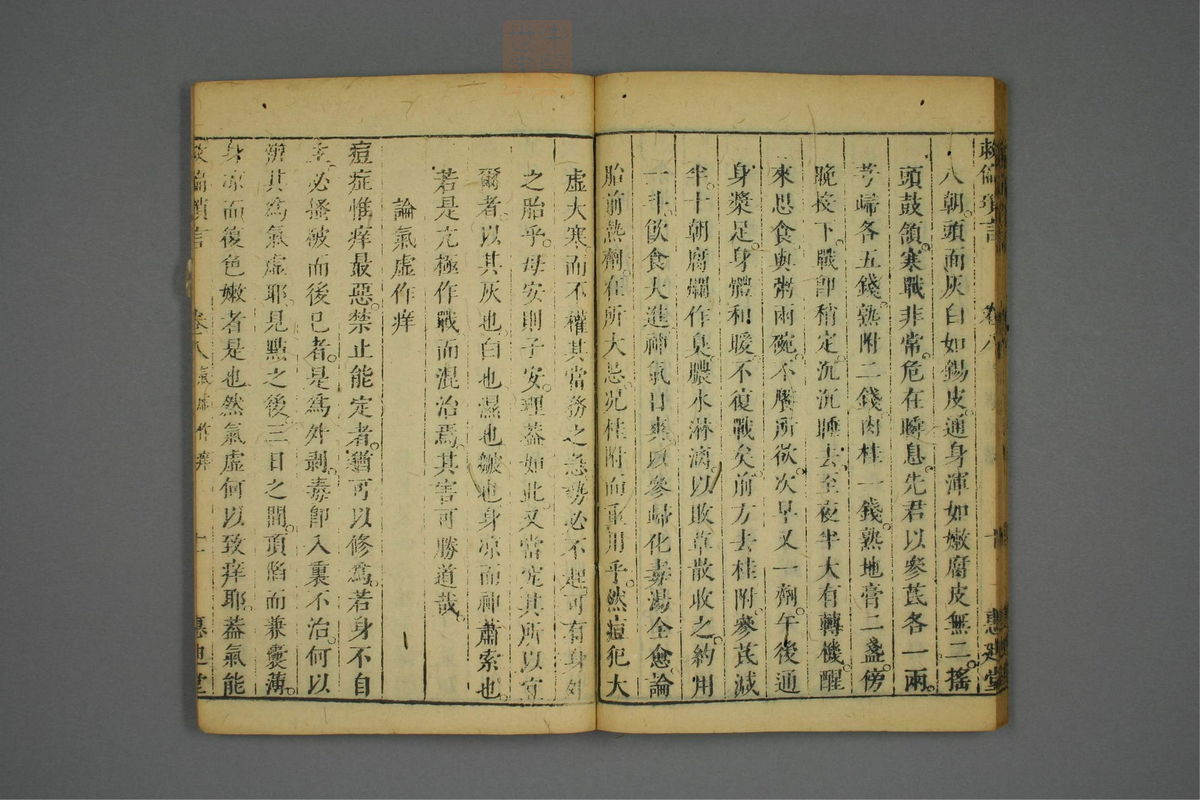 救偏瑣言 卷八 十 惠迪堂
八朝頭面灰白如錫皮通身渾如嫩腐皮無二搖
頭鼓頷寒戰非常危在瞬息先君以參芪各一兩
芎歸各五錢熟附二錢肉桂一錢熟地膏二盞傍
晚投下戰卽稍定沉沉睡去至夜半大有轉機醒
來思食與粥兩碗不饜所欲次早又一劑午後通
身漿足身體和暖不復戰矣前方去桂附參芪減
半十朝腐爛作臭膿水淋漓以敗草散收之約用
一斗飲食大進神氣日爽以參歸化毒湯全愈論
胎前熱劑在所大忌况桂附而重用乎然痘犯大
虛大寒而不權其當務之急勢必不起可有身外
之胎乎母安則子安理葢如此又當究其所以宜
爾者以其灰也白也濕也皺也身凉而神蕭索也
若是亢極作戰而混治焉其害可勝道哉
論氣虛作痒
痘症惟痒最惡禁止能定者猶可以修爲若身不自
主必搔破而後已者是爲外剥毒卽入裏不治何以
辨其爲氣虛耶見點之後三日之間頂陷而兼囊薄
身凉而復色嫩者是也然氣虛何以致痒耶葢氣能
救偏瑣言 卷八 氣虛作痒 十一 惠迪堂